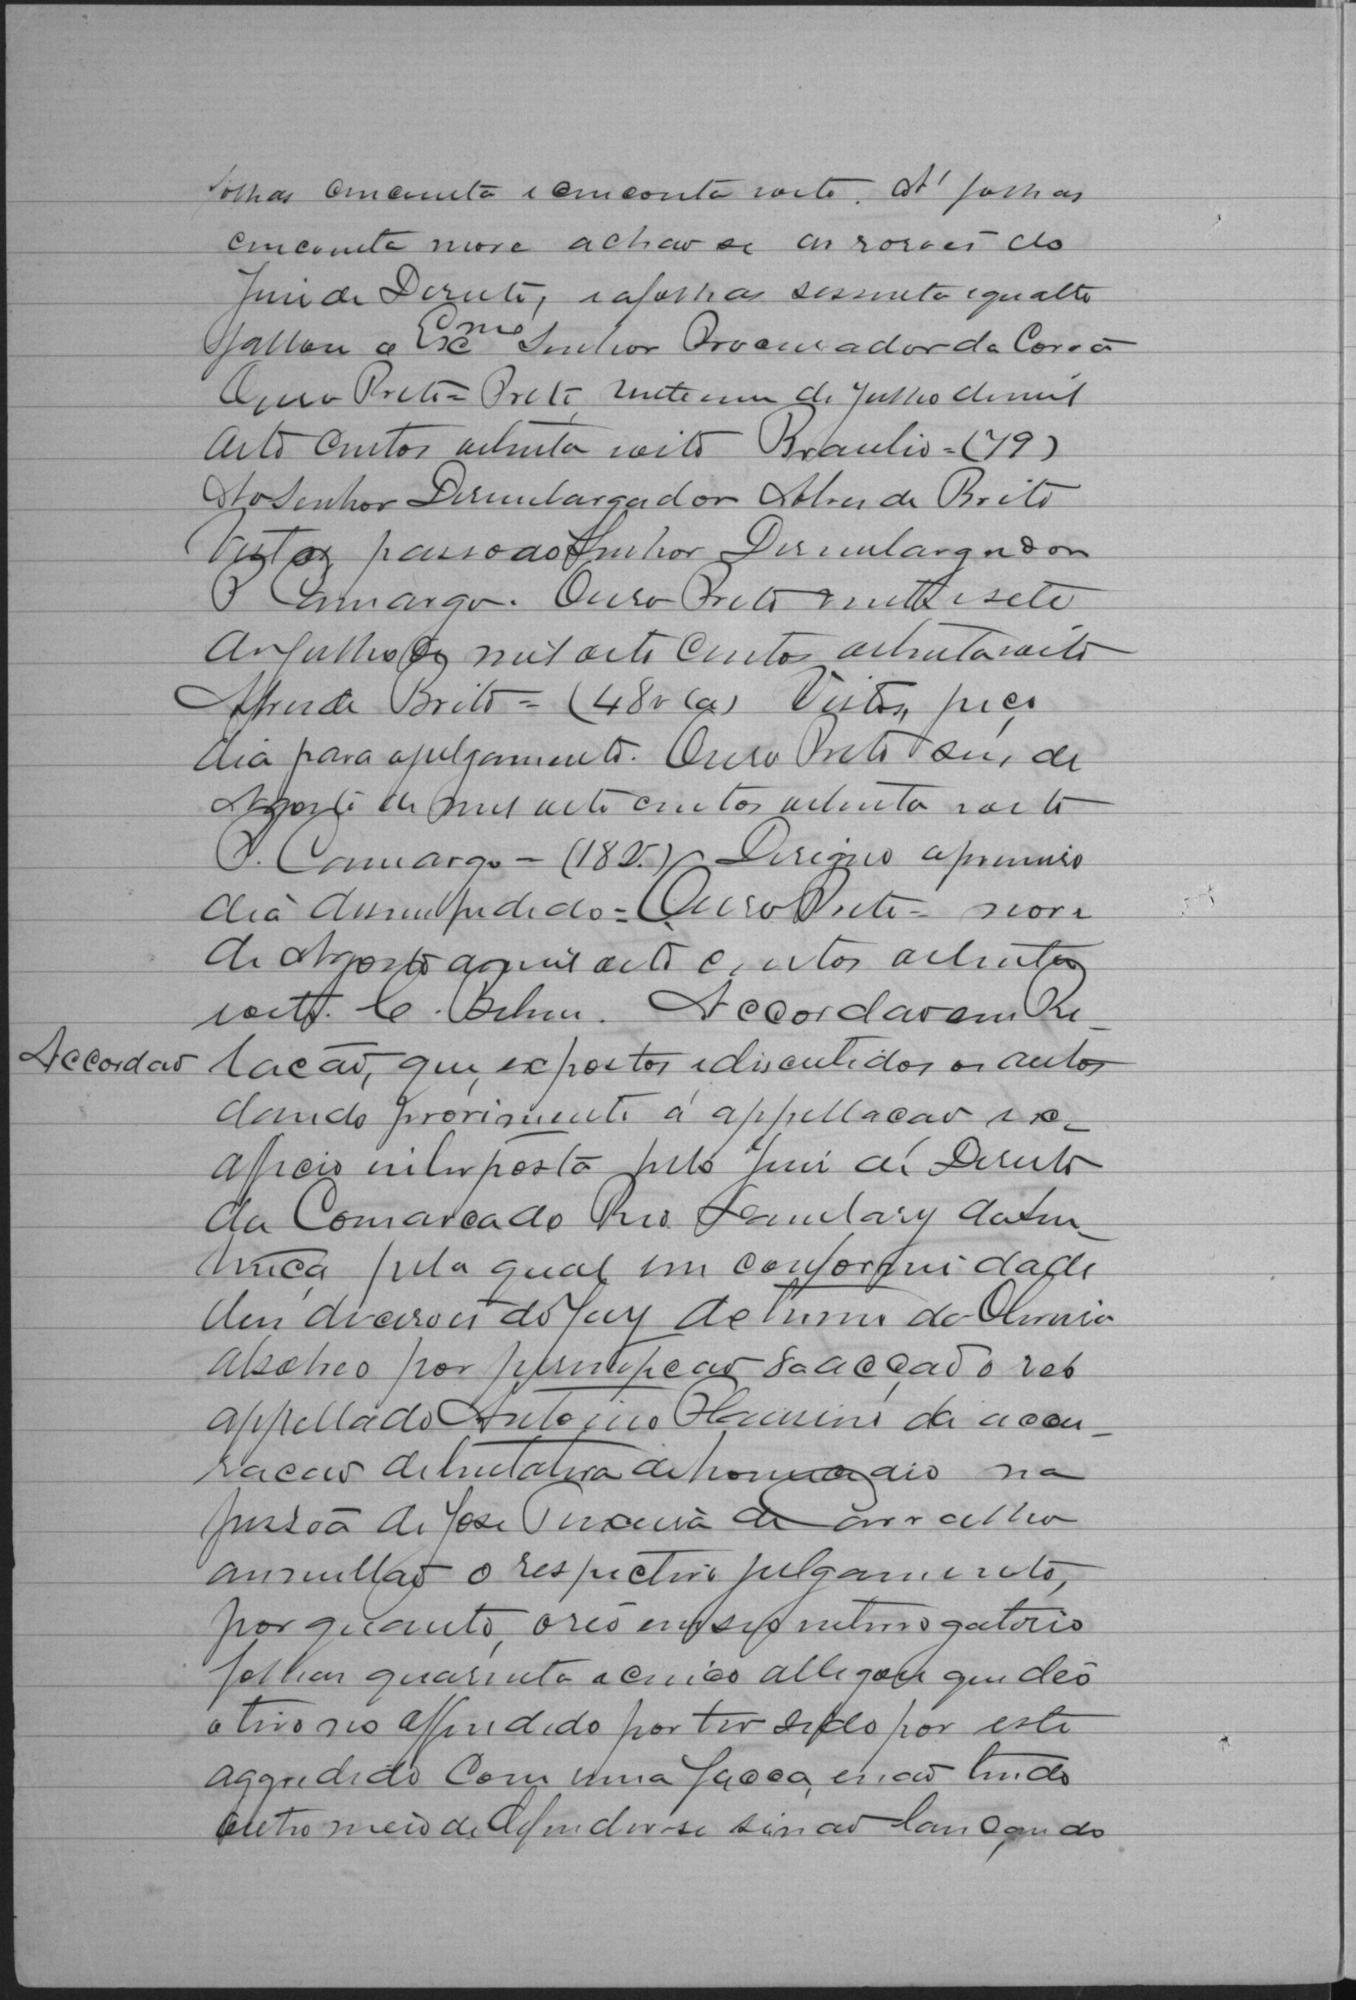 folhas cincoenta e cincoenta e oito. A' folhas
cincoenta nove achao se as rasões do
Juis de Direito, e a folhas sessenta e quatto
fallou o Exmo Senhor Procurador da Corôa
Ouro Preto = Preto, vinte um de Julho de mil
oito centos oitenta e oito Braulio = (79)
Ao Senhor Desembargador Alves de Brito
Vistos, passo ao Senhor Desembargador
P Camargo. Ouro Preto vinte e sete
de Julho de mil oito centos oitenta e oito
Alves de Brito = (48 Vistos, peço
dia para o julgamento. Ouro Preto seis de
Agosto de mil oito centos oitenta e oito
P. Camargo = (182.) Designo o primeiro
dia desempedido = Ouro Preto = nove
de Agosto de mil oito centos oitenta
e oito. C. Accordao em Re-
Accordao
lacão, que, expostos e discutidos os autos
dando provimento á appellacao ex-
officio interposta pelo Juis de Direito
da Comarca do Rio da Sen-
tença pela qual em conformidade
das decisoes do Jury do termo da Oliveira
absolveo por da accção o réo
appellado Antonio de accu-
sacao de tentativa de homicidio na
pessoa de Jose Teixeira de Carvalho
annullao o respectivo julgamento,
por quanto, o reo em seo interrogatorio
folhas quarenta e cinco allegou que deo
o tiro no offendido por ter sido por este
aggredido com uma facca, e nao tendo
outro meio de defender-se sinao lancando